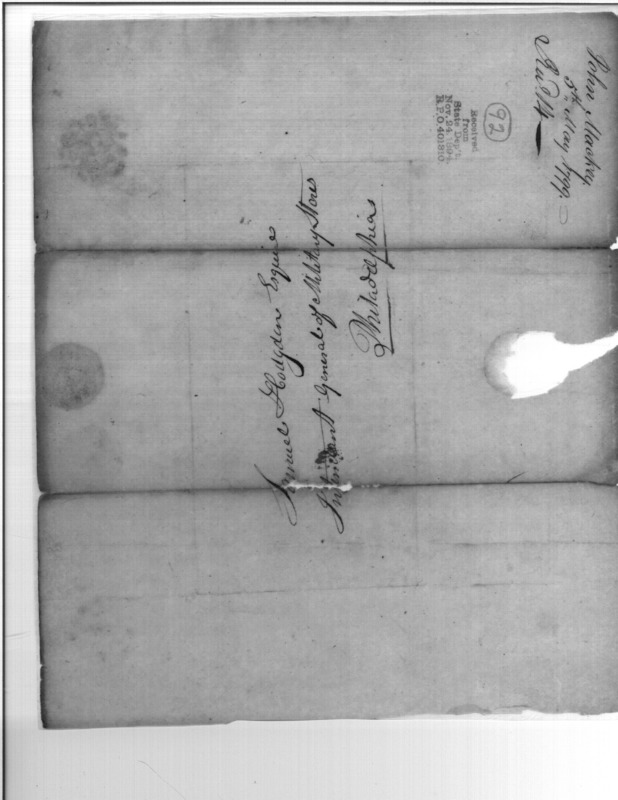 John Mackey
5th May 1799.
92
Received
from
State Dep't.
Nov. 24, 1894
R.P.O. 401810
Samuel Hodgdon Esquire
Intendant General of Military Stores
Philadelphia